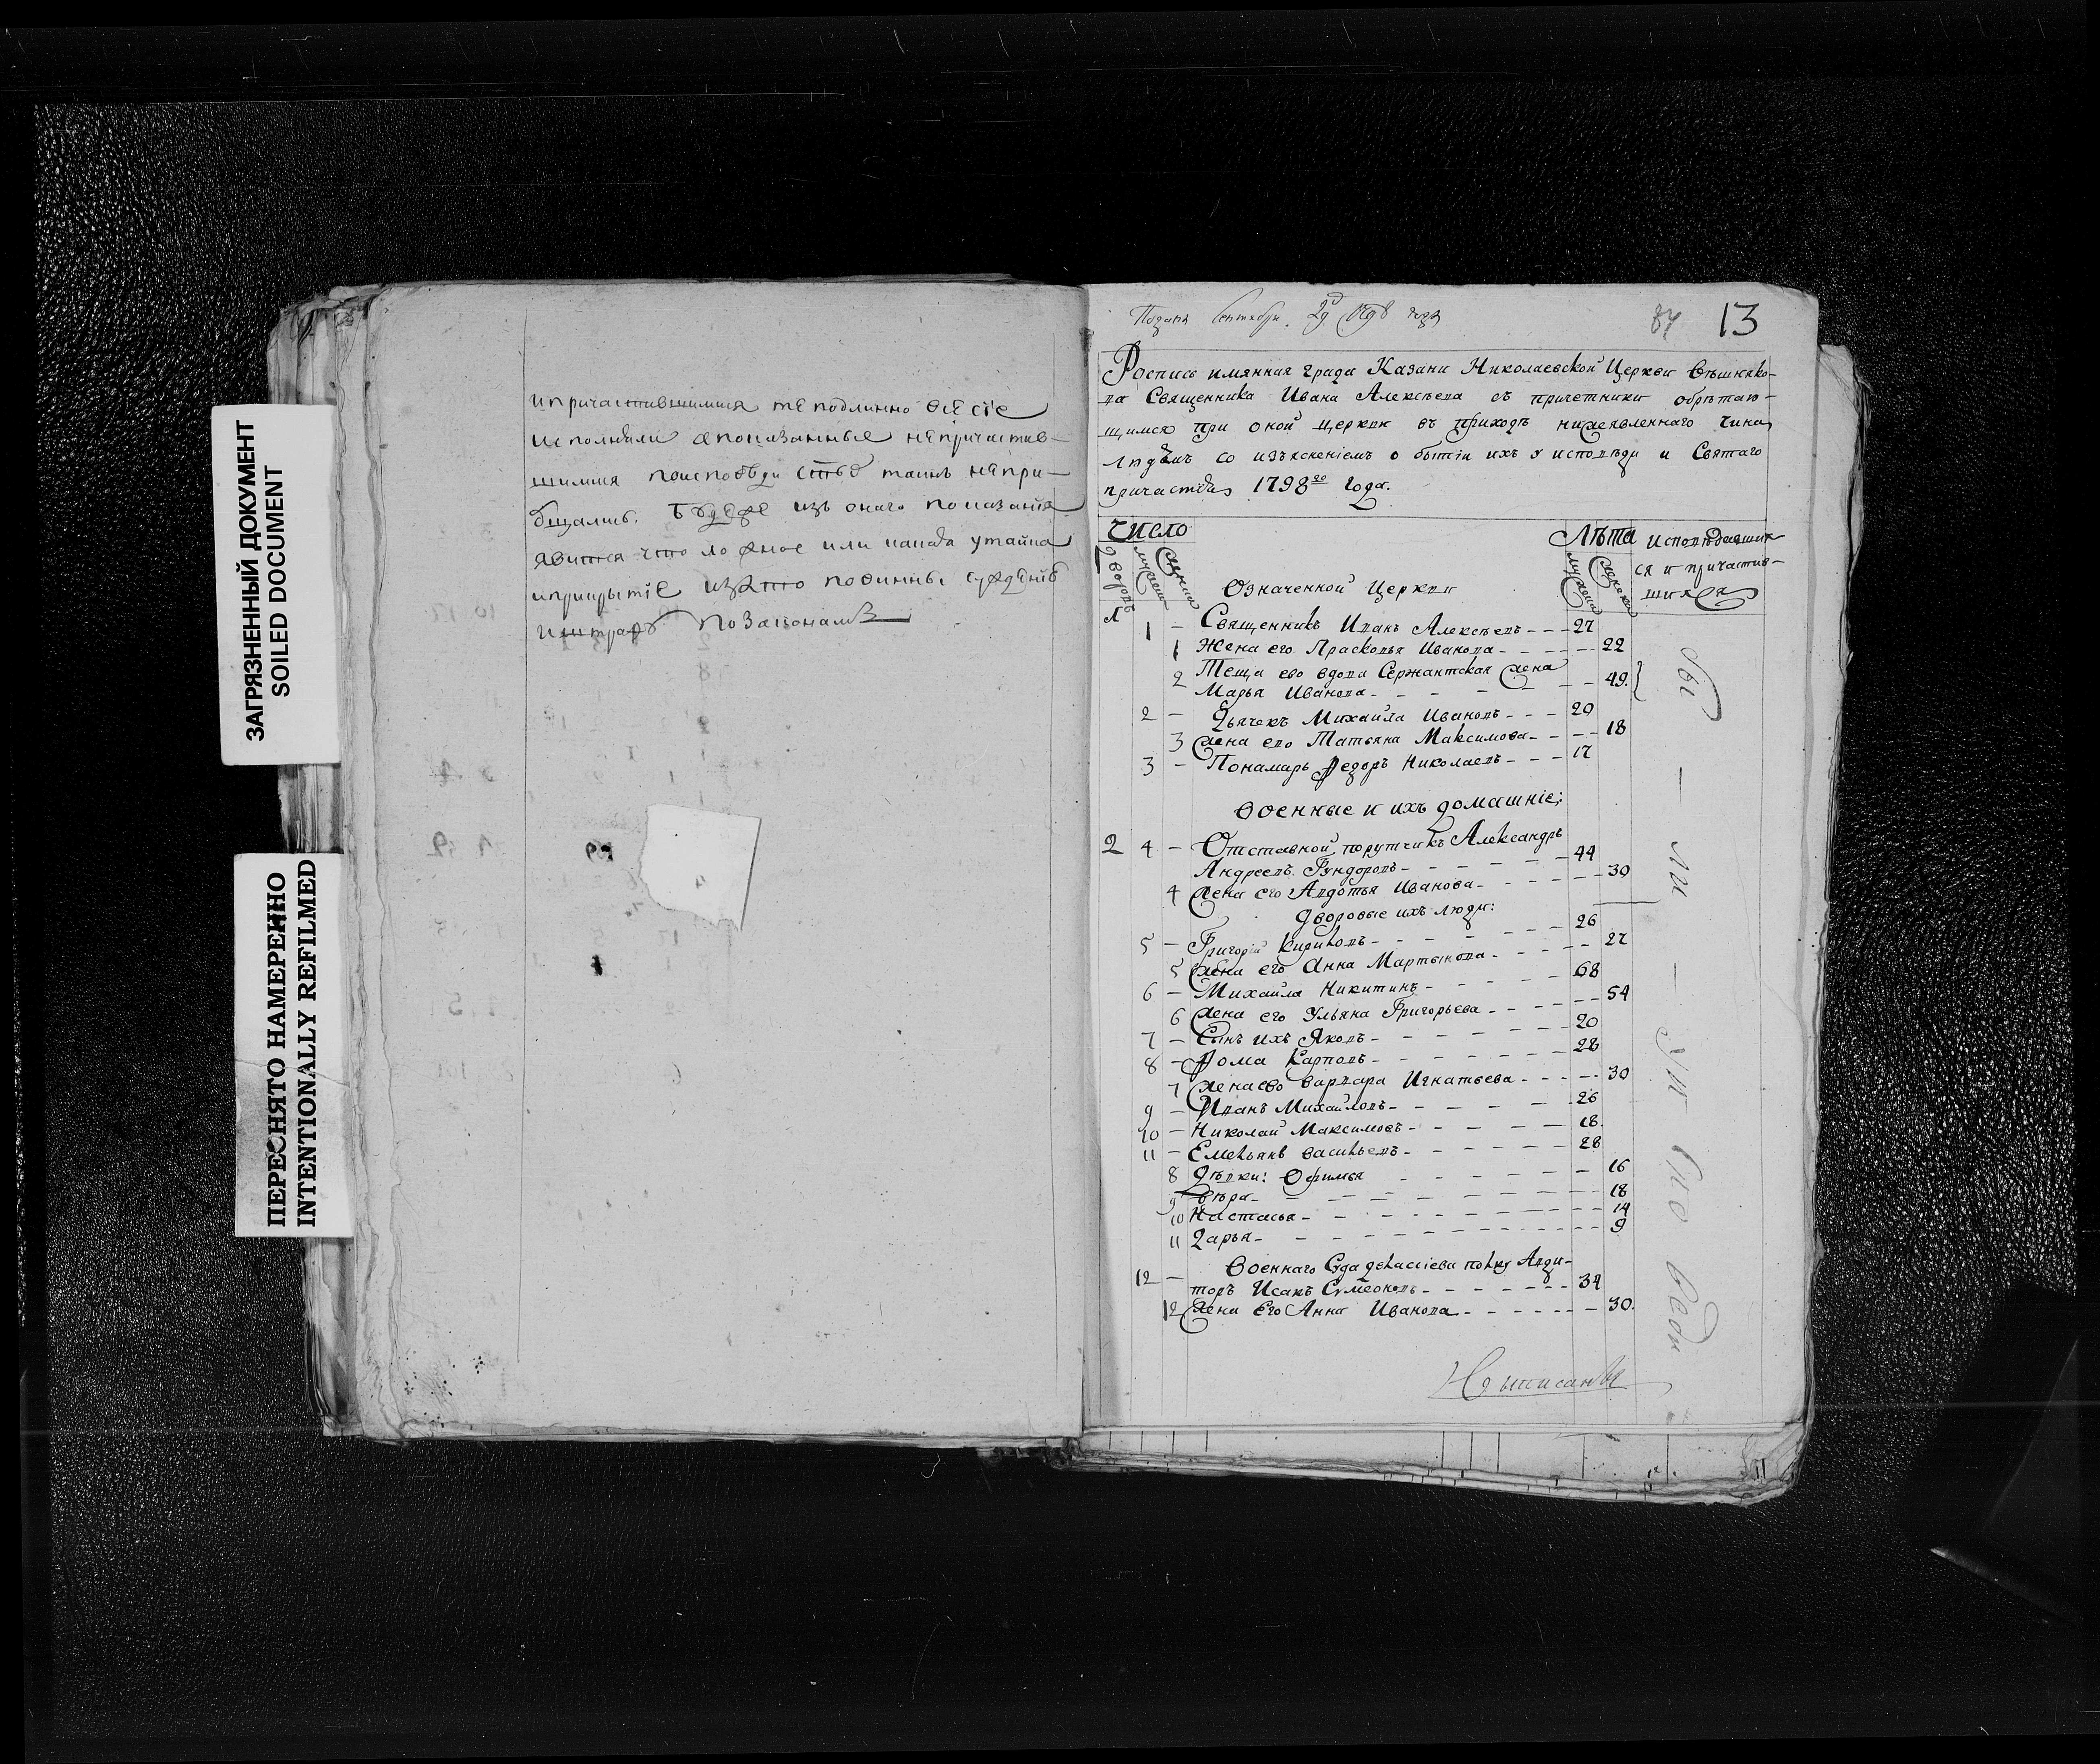 ЗАГРЯЗНЕННЫЙ ДОКУМЕНТ
SOILED DOCUMENT
ПЕРЕСНЯТО НАМЕРЕННО
INTENTIONALLY REFILMED
и причастившимися те подлинно все сіе
исполнили а показанные не причастив-
шимися по исповѣди таинъ не прі-
бщались. буде же изъ онаго показанія
явится что ложное или какова утайка
и прикрытіе изъ то повинны сужденію
и штрафъ по законамъ
Подана Сентября 29 1798 года
84 13
Роспись имянная града Казани Николаевской Церкви Вѣшняко-
ва Священника Ивана Алексѣева съ причетники обрѣтаю-
щимся при оной церкви въ приходѣ нижеявленнаго чина
людѣмъ со изъясненіемъ о бытіи ихъ у исповѣди и Святаго
причастія 1798го года.
Число Лѣта Исповѣдавших
дворовъ мужеска женска мужеска женска ся и причастив-
шихся
Означенной Церкви
1 1 - Священникъ Иванъ Алексѣевъ - - - 27
1 Жена его Прасковья Иванова - - - - 22
2 Теща ево вдова Сержантская жена
Марья Иванова - - - - - 49.
2 - Дьячекъ Михайла Ивановъ - - - 20
3 жена ево Татьяна Максимова - - - - 18
3 - Пономарь Ѳедоръ Николаевъ - - - 17
Военные и ихъ домашніе;
2 4 - Отставной порутчикъ Александръ
Андреевъ Гундоровъ - - - - - 44
4 жена его Авдотья Иванова - - - - - 30
Дворовые ихъ люди:
5 - Григорій Кириловъ - - - - - 26
5 жена его Анна Мартынова - - - - 27
6 - Михайла Никитинъ - - - - 68
6 жена его Ульяна Григорьева - - - - 54
7 - Сынъ ихъ Яковъ - - - - - 20
8 - Ѳома Карповъ - - - - - 28
7 жена ево Варвара Игнатьева - - - - 30
9 - Иванъ Михайловъ - - - - - 26
10 - Николай Максимовъ - - - - - 18.
11 - Емельянъ Васильевъ - - - - - 28
8 Дѣвки: Офимья - - - - - 16
9 Вѣра - - - - - - - 18
10 Настасья - - - - - - - 14
11 Дарья - - - - - - - 9
12 - Военнаго Суда полку Авди-
торъ Исакъ Сумеоновъ - - - - - 34
12 жена Его Анна Иванова - - - - - 30.
бы - ли - у и